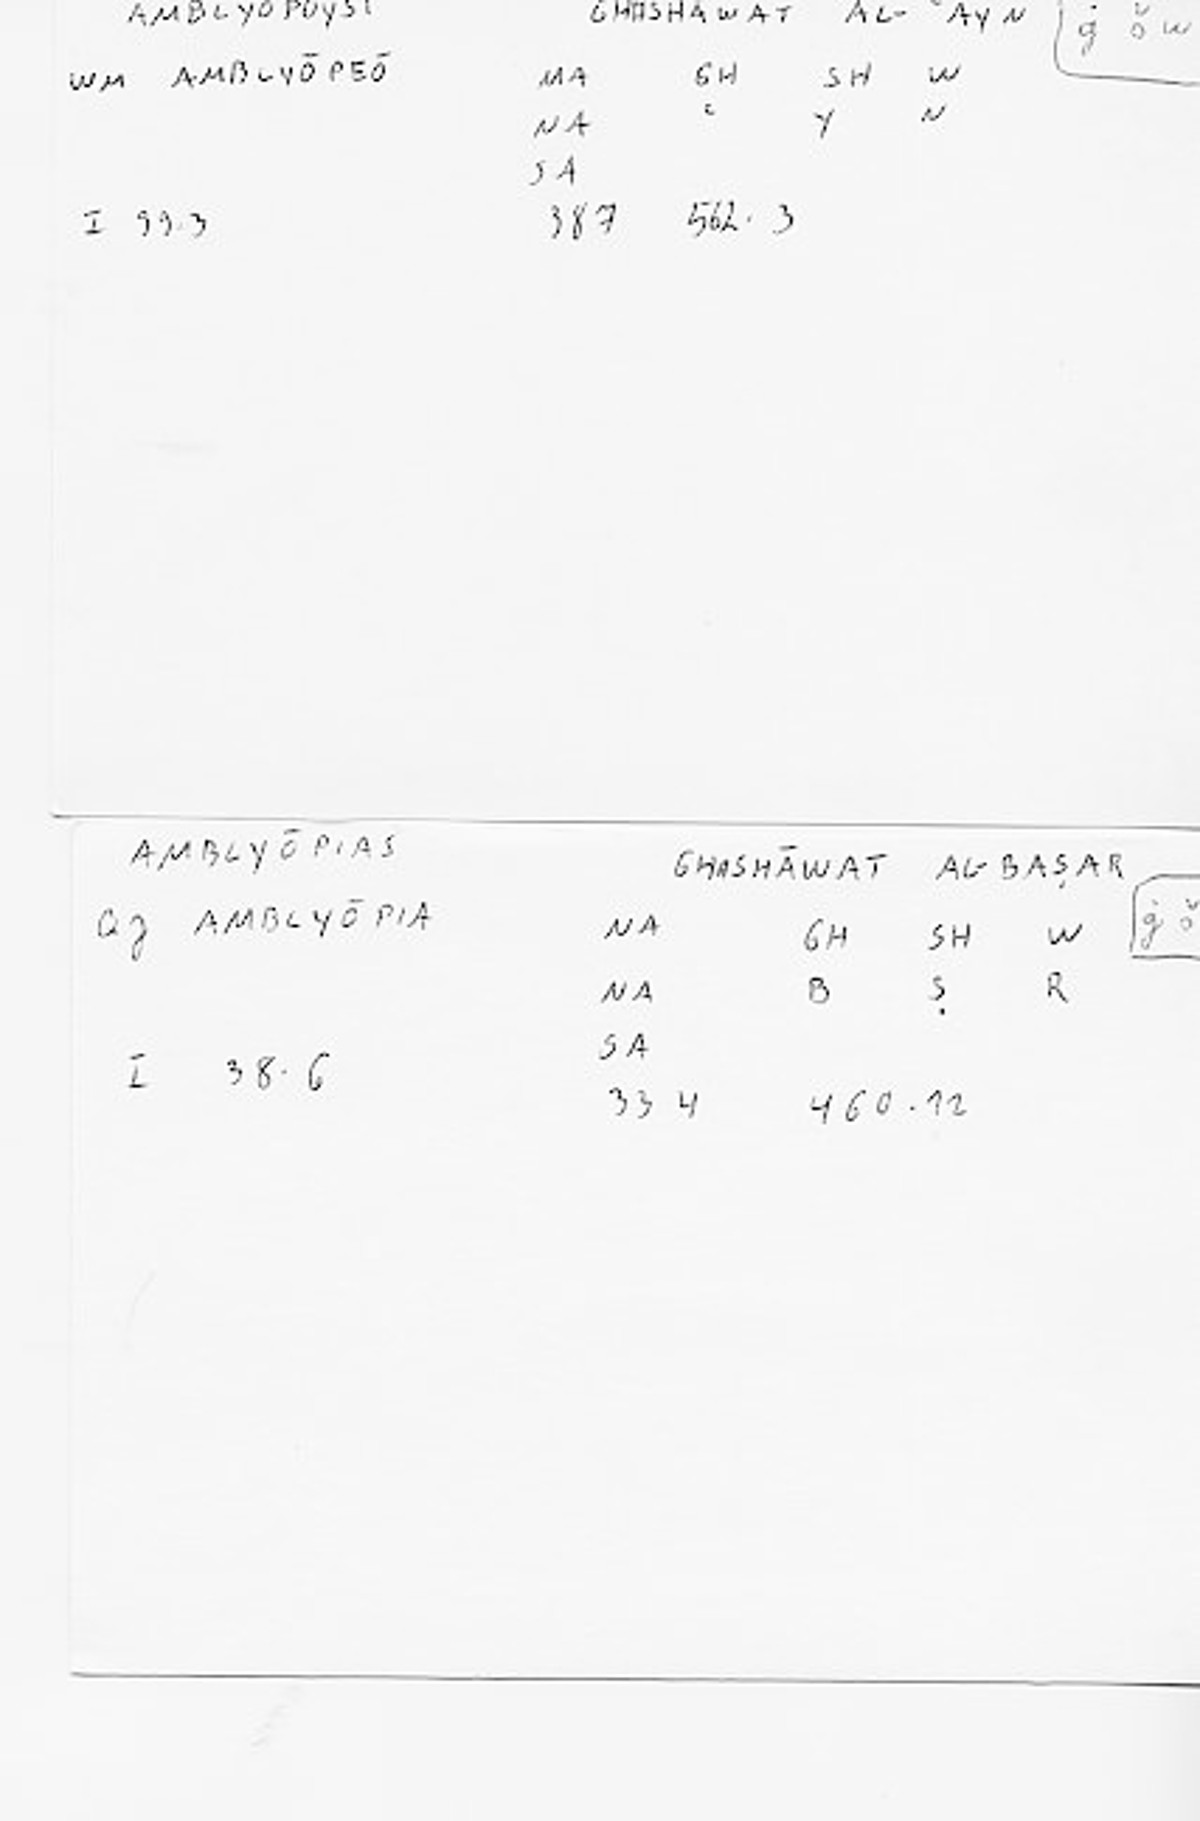 AMBLYŌPOUSI GHASHĀWAT AL-ʿAYN ġ š w
WM AMBLYŌPEŌ MA GH SH W
NA ʿ Y N
SA
I 99.3 387 562.3
AMBLYŌPIAS GHASHĀWAT AL-BAṢAR
AMBLYŌPIA NA GH SH W ġ š
NA B Ṣ R
SA
I 38.6
334 460.12